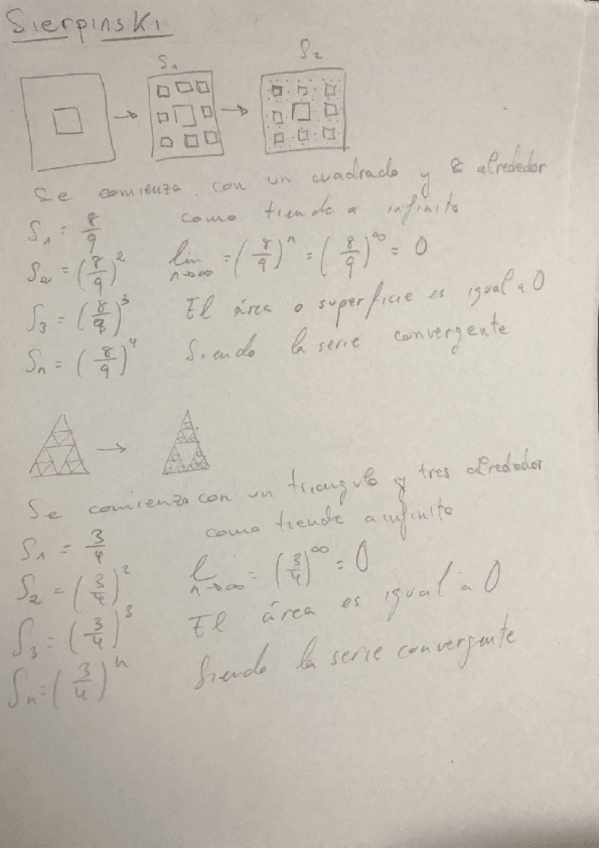 Sierpinski
S₁
S₂
Se comienza con un cuadrado y 8 alrededor
S₁ = 8/9 como tiende a infinito
S₂ = (8/9)² lim n→∞ = (8/9)ⁿ = (8/9)^∞ = 0
S₃ = (8/9)³ El área o superficie es igual a 0
Sn = (8/9)ⁿ Siendo la serie convergente
Se comienza con un triangulo y tres alrededor
S₁ = 3/4 como tiende a infinito
S₂ = (3/4)² l n→∞ = (3/4)^∞ = 0
S₃ = (3/4)³ El área es igual a 0
Sn = (3/4)ⁿ Siendo la serie convergente